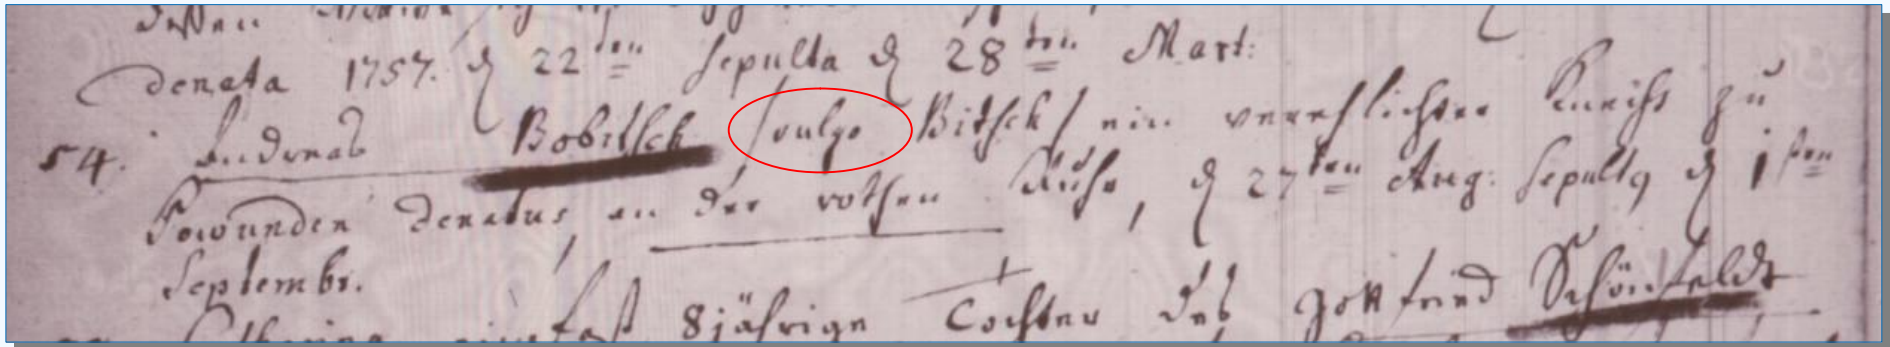 denata 1757. d 22ten sepulta d 28ten Mart:
54. Andreas Bobitsck /vulgo Bitsck/ ein verehlichter Knecht zu
denatus, an der rothen Ruhr, d 27ten Aug: sepultq d 1sten
Septembr.
fast 8jährige Tochter des Gottfried Schönfeldt